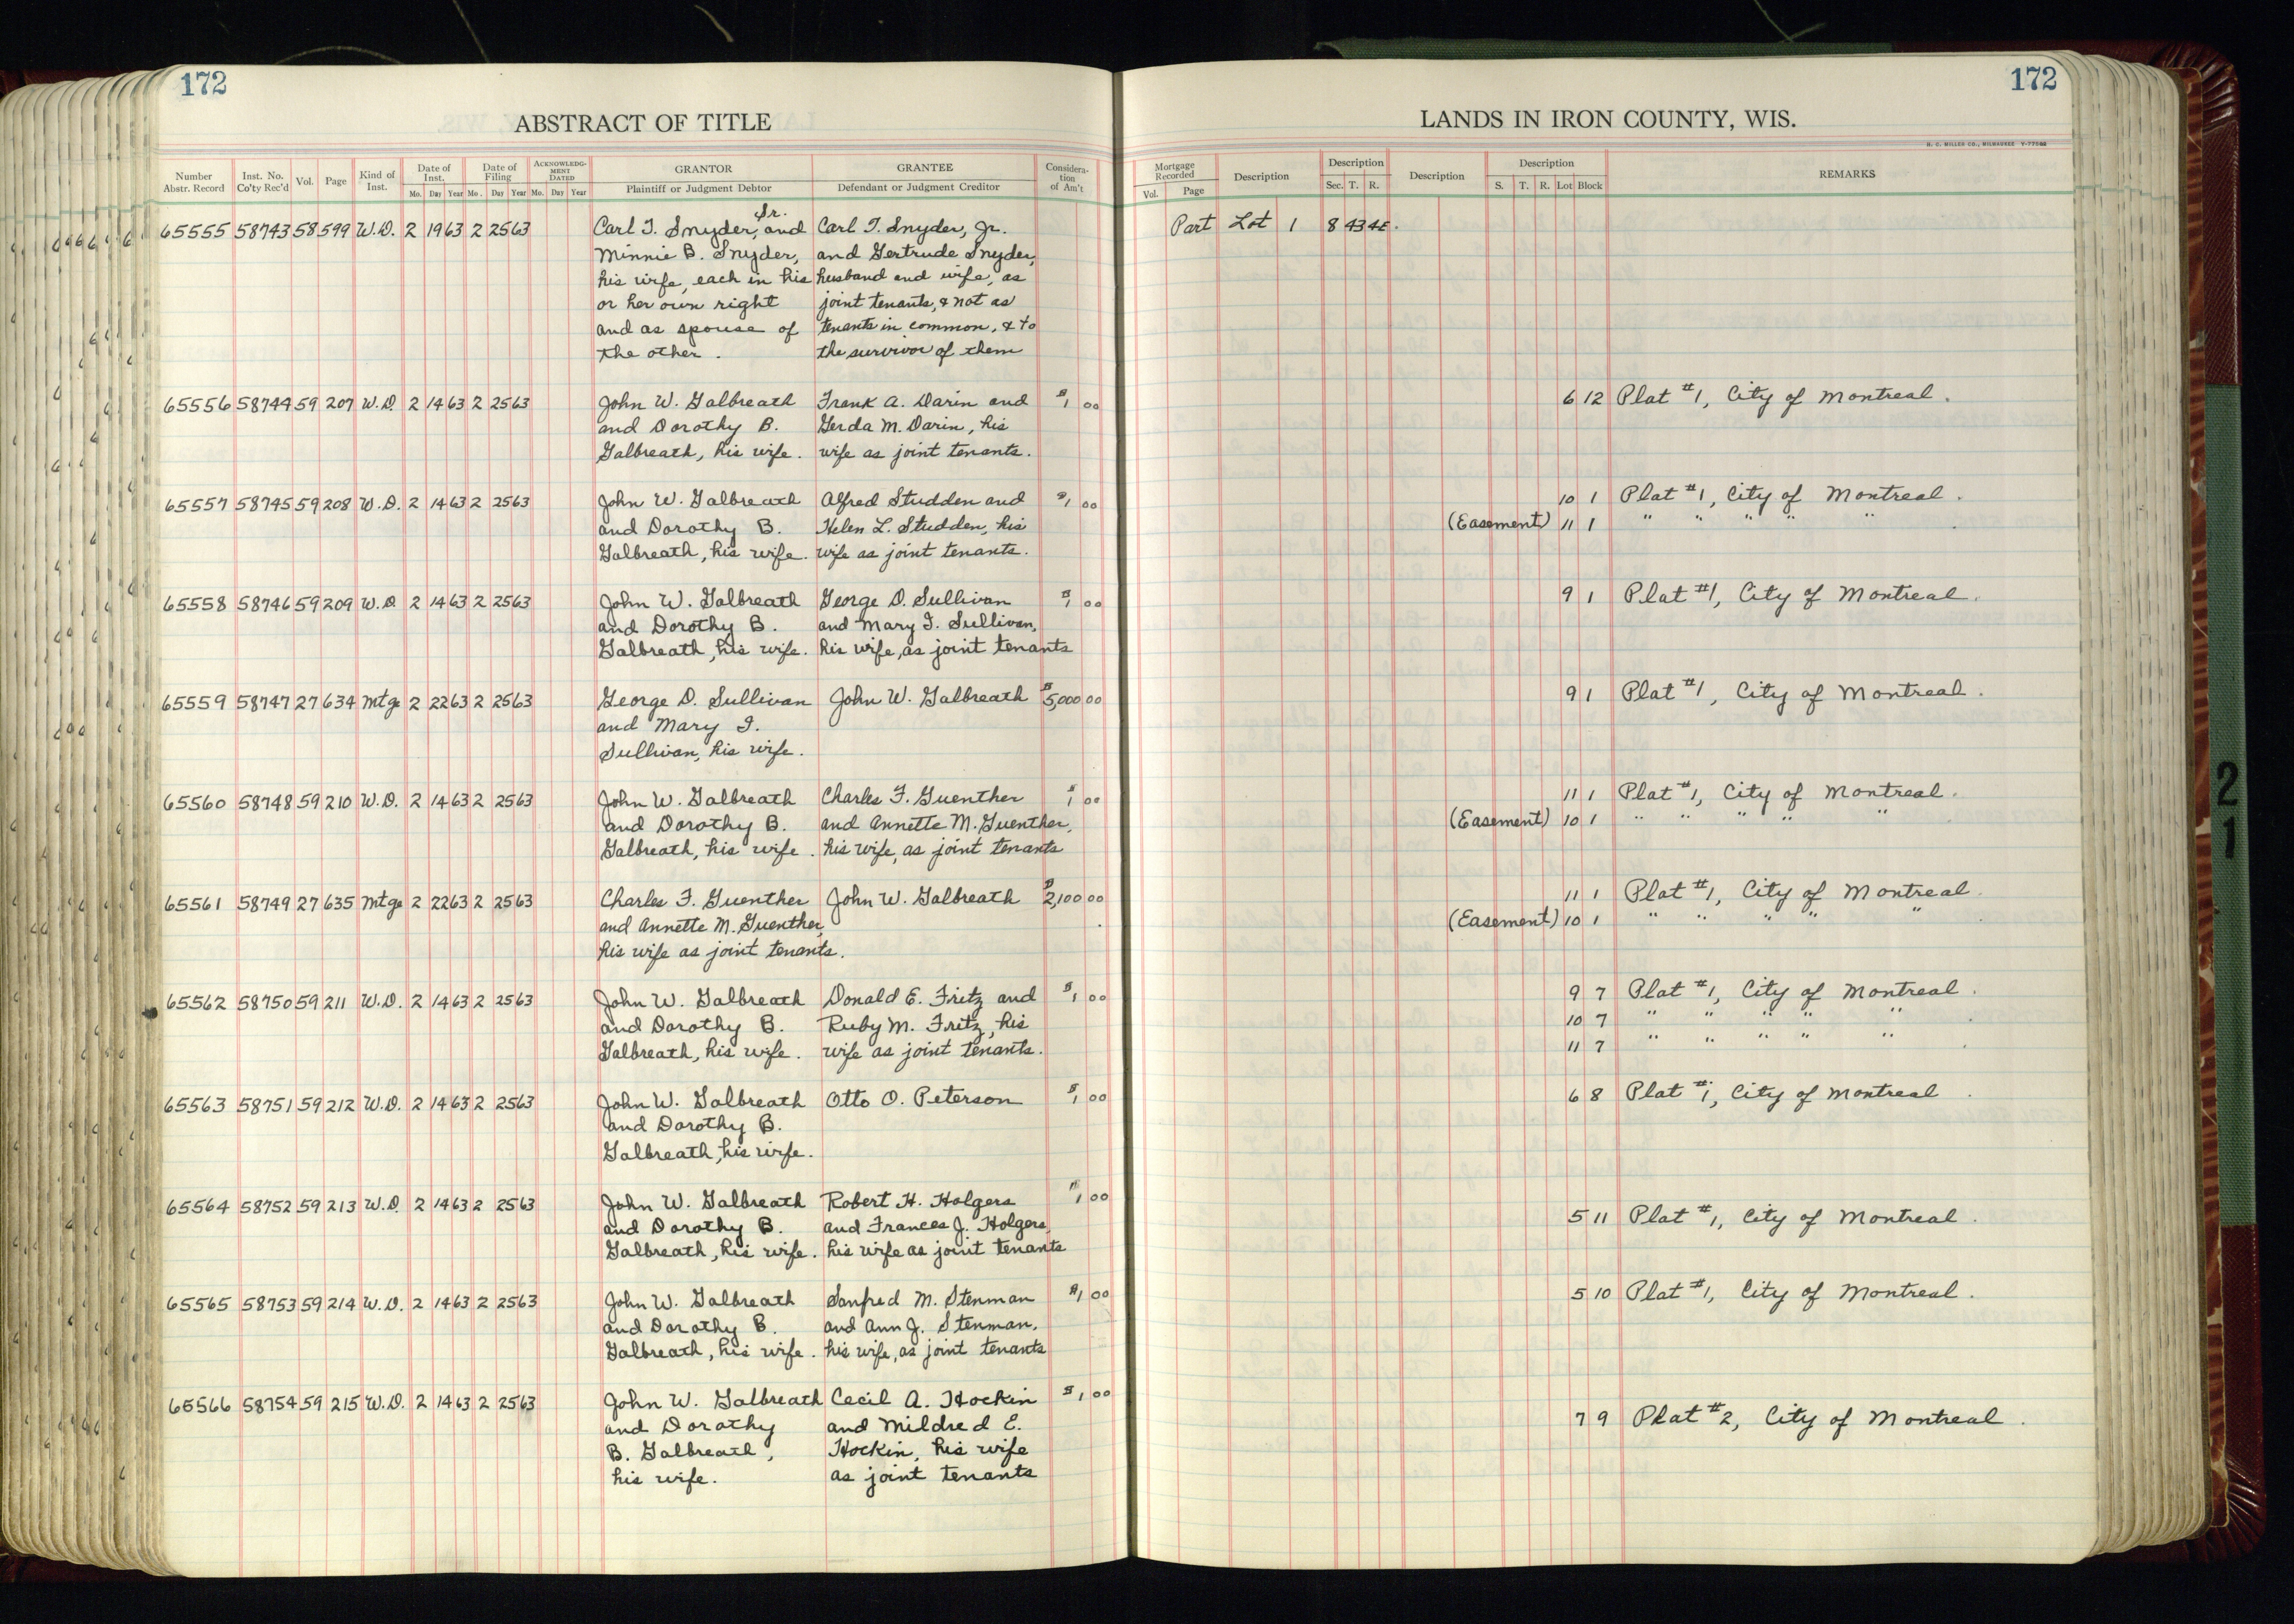 172
172
ABSTRACT OF TITLE
LANDS IN IRON COUNTY, WIS.
H. C. MILLER CO., MILWAUKEE
Number Abstr. Record | Inst. No. Co'ty Rec'd | Vol. | Page | Kind of Inst. | Date of Inst. Mo. Day Year | Date of Filing Mo. Day Year | ACKNOWLEDGMENT DATED Mo. Day Year | GRANTOR Plaintiff or Judgment Debtor | GRANTEE Defendant or Judgment Creditor | Consideration of Am't
Mortgage Recorded Vol. Page | Description | Description Sec. T. R. | Description | Description S. T. R. Lot Block | REMARKS
65555 58743 58 599 W.D. 2 19 63 2 25 63 Carl T. Snyder, Sr. and Carl T. Snyder, Jr. Part Lot 1 8 43 4E.
Minnie B. Snyder, and Gertrude Snyder,
his wife, each in his husband and wife, as
or her own right joint tenants, & not as
and as spouse of tenants in common, & to
the other. the survivor of them
65556 58744 59 207 W.D. 2 14 63 2 25 63 John W. Galbreath Frank A. Darin and $1 00 6 12 Plat #1, City of Montreal.
and Dorothy B. Gerda M. Darin, his
Galbreath, his wife. wife as joint tenants.
65557 58745 59 208 W.D. 2 14 63 2 25 63 John W. Galbreath Alfred Studden and $1 00 10 1 Plat #1, City of Montreal.
and Dorothy B. Helen L. Studden, his (Easement) 11 1 " " " " "
Galbreath, his wife. wife as joint tenants.
65558 58746 59 209 W.D 2 14 63 2 25 63 John W. Galbreath George D. Sullivan $1 00 9 1 Plat #1, City of Montreal.
and Dorothy B. and Mary I. Sullivan,
Galbreath, his wife. his wife, as joint tenants
65559 58747 27 634 Mtge 2 22 63 2 25 63 George D. Sullivan John W. Galbreath $5,000 00 9 1 Plat #1, City of Montreal.
and Mary I.
Sullivan, his wife.
65560 58748 59 210 W.D. 2 14 63 2 25 63 John W. Galbreath Charles F. Guenther $1 00 11 1 Plat #1, City of Montreal.
and Dorothy B. and Annette M. Guenther, (Easement) 10 1 " " " " "
Galbreath, his wife. his wife, as joint tenants
65561 58749 27 635 Mtge 2 22 63 2 25 63 Charles F. Guenther John W. Galbreath $2,100 00 11 1 Plat #1, City of Montreal.
and Annette M. Guenther, (Easement) 10 1 " " " " "
his wife as joint tenants.
65562 58750 59 211 W.D. 2 14 63 2 25 63 John W. Galbreath Donald E. Fritz and $1 00 9 7 Plat #1, City of Montreal.
and Dorothy B. Ruby M. Fritz, his 10 7 " " " " "
Galbreath, his wife. wife as joint tenants. 11 7 " " " " "
65563 58751 59 212 W.D. 2 14 63 2 25 63 John W. Galbreath Otto O. Peterson $1 00 6 8 Plat #1, City of Montreal
and Dorothy B.
Galbreath, his wife.
65564 58752 59 213 W.D. 2 14 63 2 25 63 John W. Galbreath Robert H. Holgers $1 00
and Dorothy B. and Frances J. Holgers, 5 11 Plat #1, City of Montreal.
Galbreath, his wife. his wife as joint tenants
65565 58753 59 214 W.D. 2 14 63 2 25 63 John W. Galbreath Sanfred M. Stenman $1 00 5 10 Plat #1, City of Montreal.
and Dorothy B. and Ann J. Stenman,
Galbreath, his wife. his wife, as joint tenants
65566 58754 59 215 W.D. 2 14 63 2 25 63 John W. Galbreath Cecil A. Hockin $1 00
and Dorothy and Mildred E. 7 9 Plat #2, City of Montreal.
B. Galbreath, Hockin, his wife
his wife. as joint tenants
21